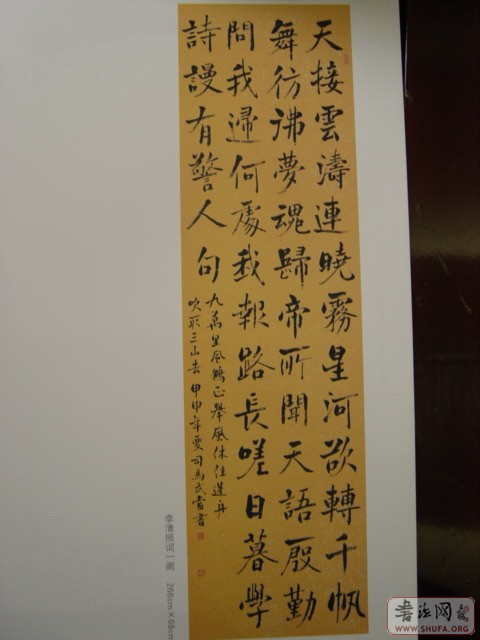 天接雲濤連曉霧星河欲轉千帆
舞彷彿夢魂歸帝所聞天語殷勤
問我歸何處我報路長嗟日暮學
詩謾有驚人句
九萬里風鵬正舉風休住蓬舟
吹取三山去 甲申年夏司馬武當書
李清照词一阕 266cm×68cm
書法网
WWW.SHUFA.ORG